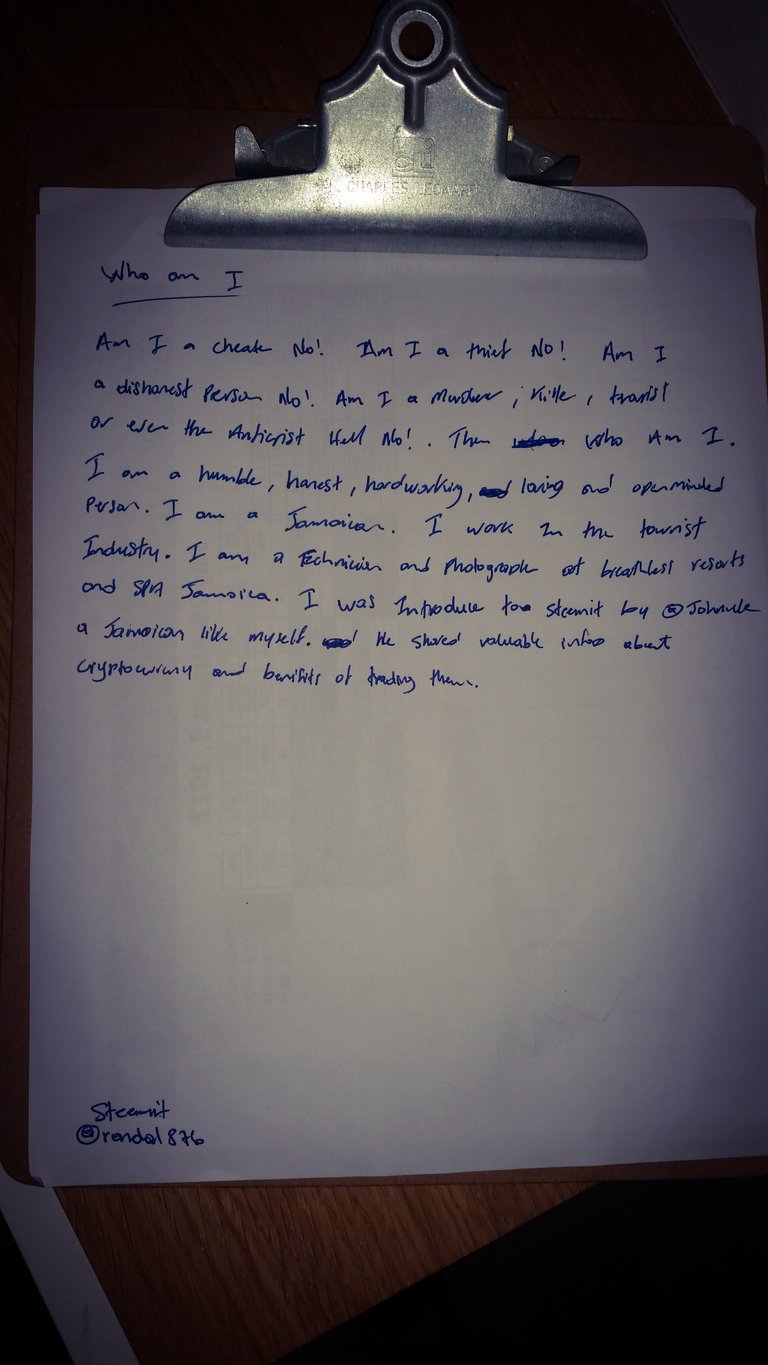 CHARLES LEONARD
Who am I
Am I a cheate No! Am I a thief No! Am I
a dishonest Person No! Am I a Murderer, Killer,
or even the Anticrist Hell No!. Then Who Am I.
I am a humble, honest, hardworking, loving and openminded
Person. I am a Jamaican. I work In the tourist
Industry. I am a Technician and Photograph at breathless resorts
and SPA Jamaica. I was Introduce too steemit by
a Jamaican like myself. He shared valuable infoo about
and of trading them.
Steemit
@randal876